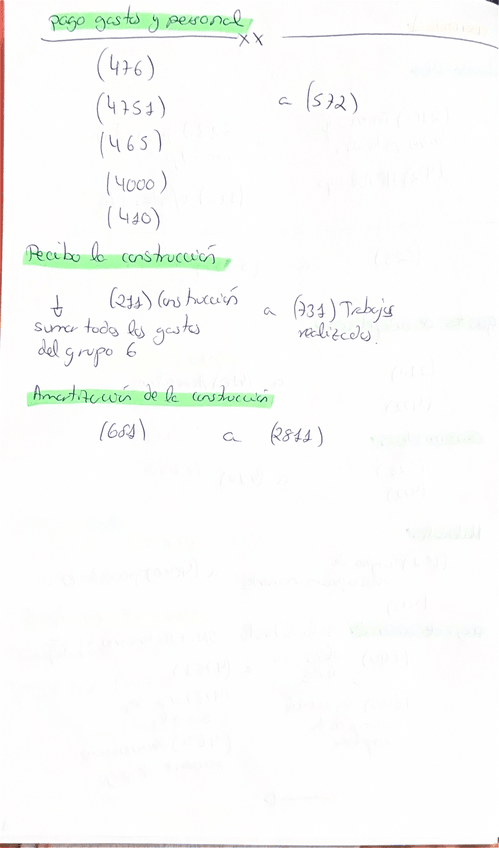 pago gastos y personal
xx
(476)
(4751) a (572)
(465)
(4000)
(410)
Recibo la construcción
(211) Construcción a (731) Trabajos
↓ realizados.
sumar todos los gastos
del grupo 6
Amortización de la construcción
(681) a (2811)